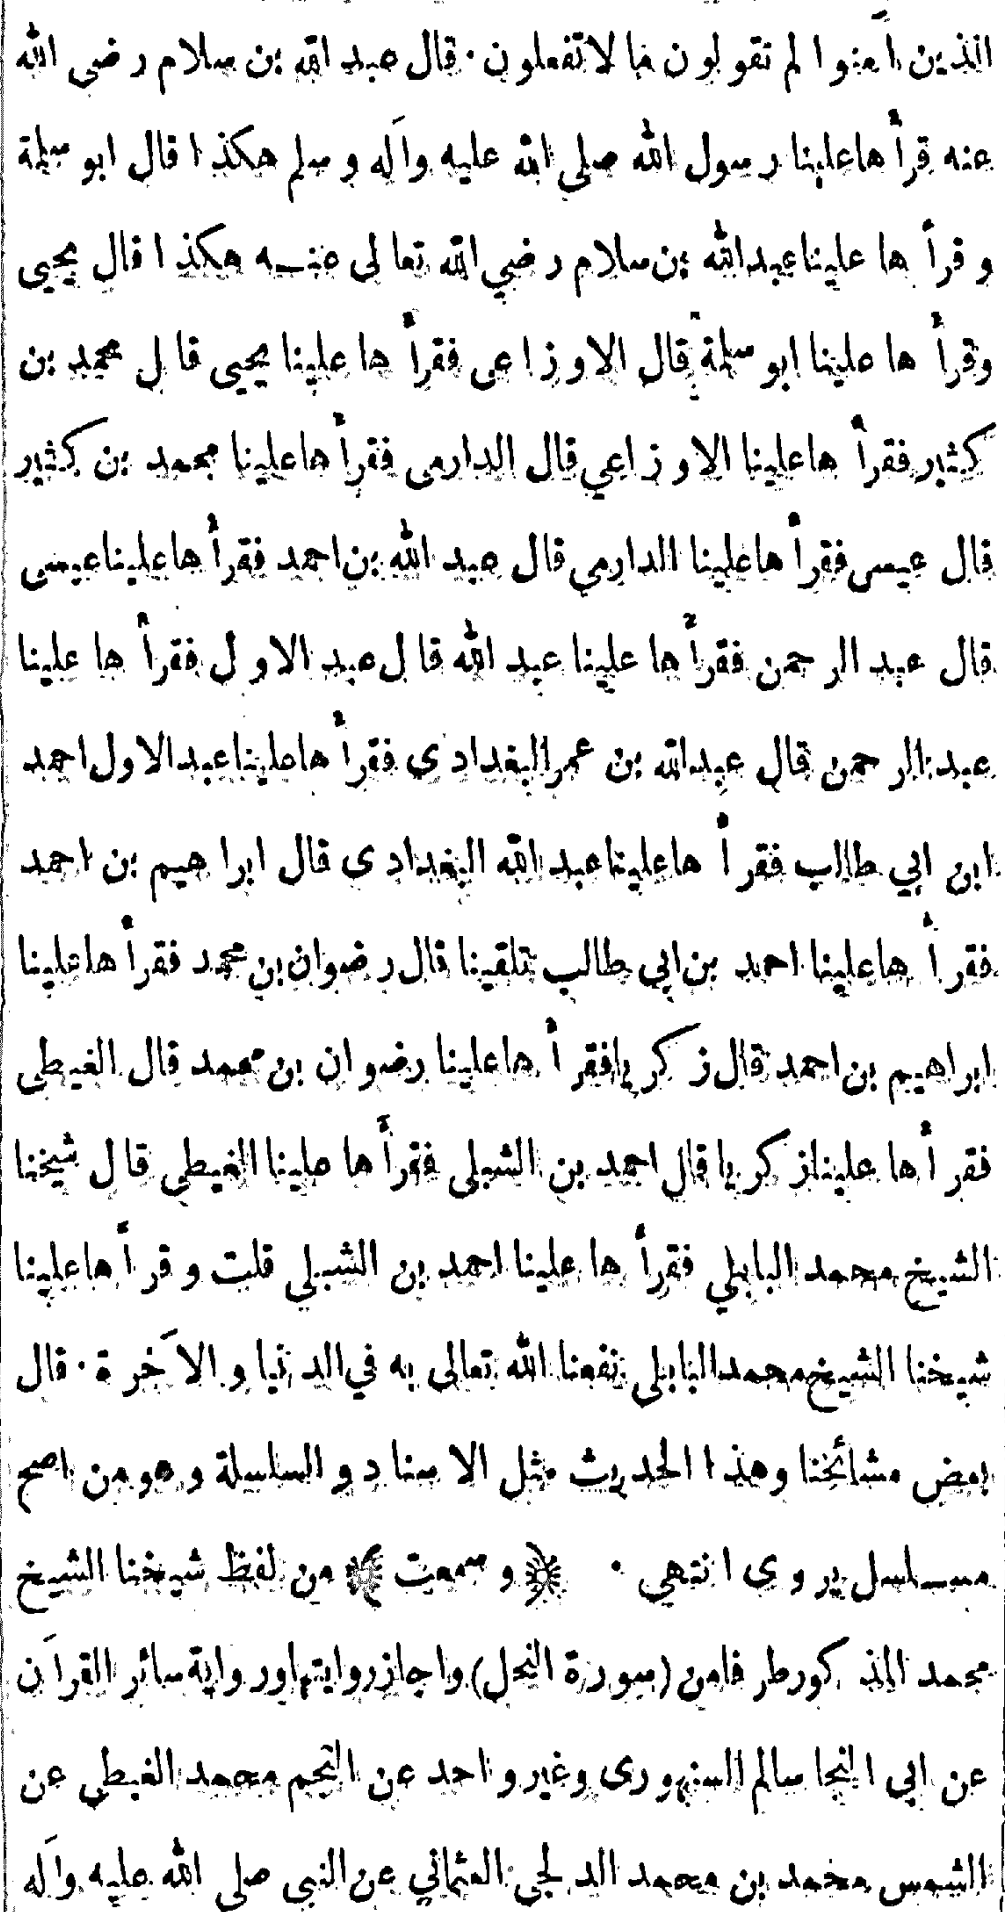 الذين آمنوا لم تقولون ما لا تفعلون · قال عبد الله بن سلام رضى الله
عنه قرأها علينا رسول الله صلى الله عليه وآله وسلم هكذا قال ابو سلمة
وقرأ ها علينا عبد الله بن سلام رضي الله تعالى عنه هكذا قال يحيى
وقرأ ها علينا ابو سلمة قال الاوزاعى فقرأ ها علينا يحيى قال محمد بن
كثير فقرأ ها علينا الاوزاعي قال الدارمى فقرأ ها علينا محمد بن كثير
قال عيسى فقرأ ها علينا الدارمي قال عبد الله بن احمد فقرأ ها علينا عيسى
قال عبد الرحمن فقرأ ها علينا عبد الله قال عبد الاول فقرأ ها علينا
عبد الرحمن قال عبد الله بن عمر البغدادى فقرأ ها علينا عبد الاول احمد
ابن ابي طالب فقرأ ها علينا عبد الله البغدادى قال ابراهيم بن احمد
فقرأ ها علينا احمد بن ابى طالب بتلقينا قال رضوان بن محمد فقرأ ها علينا
ابراهيم بن احمد قال زكريا فقرأ ها علينا رضوان بن محمد قال الغيطى
فقرأ ها علينا زكريا قال احمد بن الشبلى فقرأ ها علينا الغيطى قال شيخنا
الشيخ محمد البابلي فقرأ ها علينا احمد بن الشبلي قلت وقرأ ها علينا
شيخنا الشيخ محمد البابلى نفعنا الله تعالى به في الدنيا والآخرة · قال
بعض مشائخنا وهذا الحديث مثل الاسناد والسلسلة وهو من اصح
مسلسل يروى انتهى · ﴿ وسمعت ﴾ من لفظ شيخنا الشيخ
محمد المذكور طرفا من (سورة النحل) واجاز روايتها ورواية سائر القرآن
عن ابى النجا سالم السنهورى وغير واحد عن النجم محمد الغيطي عن
الشمس محمد بن محمد الدلجي العثماني عن النبى صلى الله عليه وآله